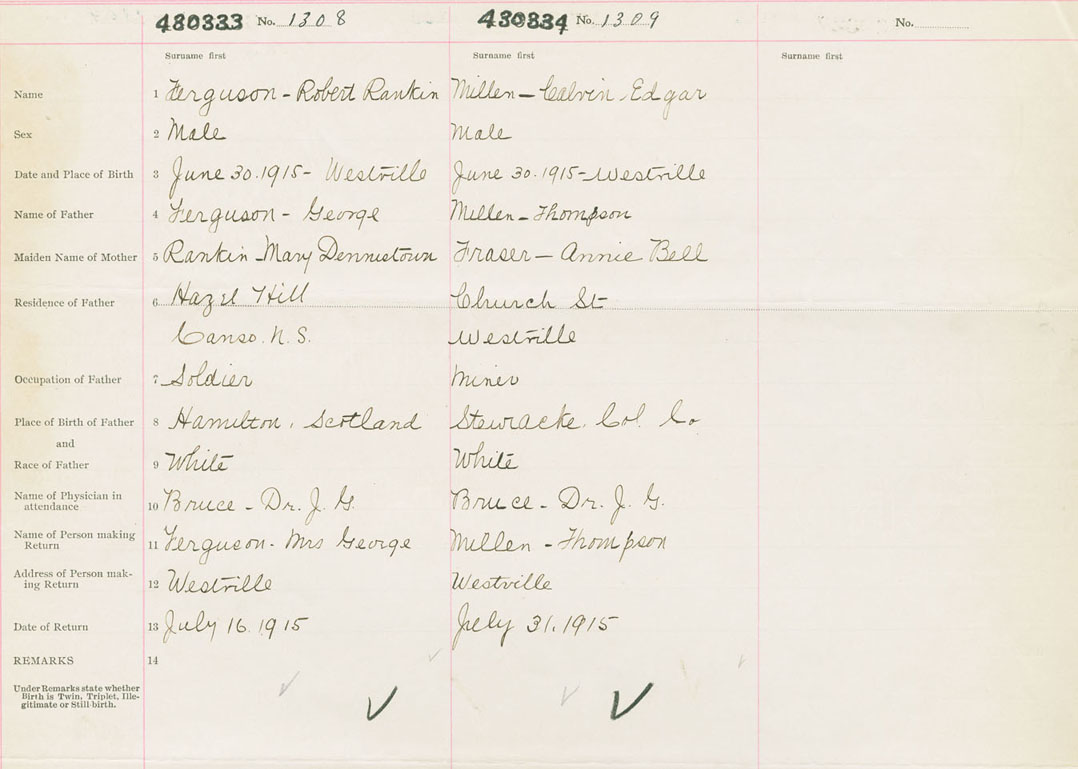 480833 No. 1308 480834 No. 1309 No.
Surname first Surname first Surname first
Name 1 Ferguson - Robert Rankin Millen - Calvin Edgar
Sex 2 Male Male
Date and Place of Birth 3 June 30.1915 - Westville June 30.1915 - Westville
Name of Father 4 Ferguson - George Millen - Thompson
Maiden Name of Mother 5 Rankin - Mary Dennistown Fraser - Annie Bell
Residence of Father 6 Hazel Hill Church St
Canso. N. S. Westville
Occupation of Father 7 Soldier Miner
Place of Birth of Father 8 Hamilton, Scotland Stewiacke. Col. Co
and
Race of Father 9 White White
Name of Physician in
attendance 10 Bruce - Dr. J. G. Bruce - Dr. J. G.
Name of Person making
Return 11 Ferguson - Mrs George Millen - Thompson
Address of Person mak-
ing Return 12 Westville Westville
Date of Return 13 July 16. 1915 July 31. 1915
REMARKS 14
Under Remarks state whether
Birth is Twin, Triplet, Ille-
gitimate or Still-birth.